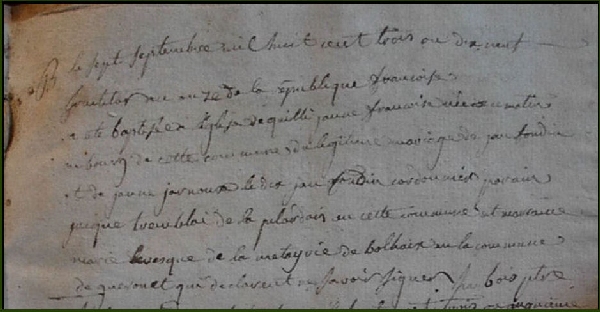 B le sept septembre mil huit cent trois ou dix neuf
fructidor an onze de la republique francoise
a été baptisée a l'eglise de quilli jeanne francoise née ce matin
au bourg de cette commune du legitime mariage de jan
et de janne jarnoux le dix jan cordonnier parain
jacque tremblai de la en cette commune et maraine
marie levesque de la metayrie de bolhaix en la commune
de guenouet qui declarent ne savoir signer bois ptre